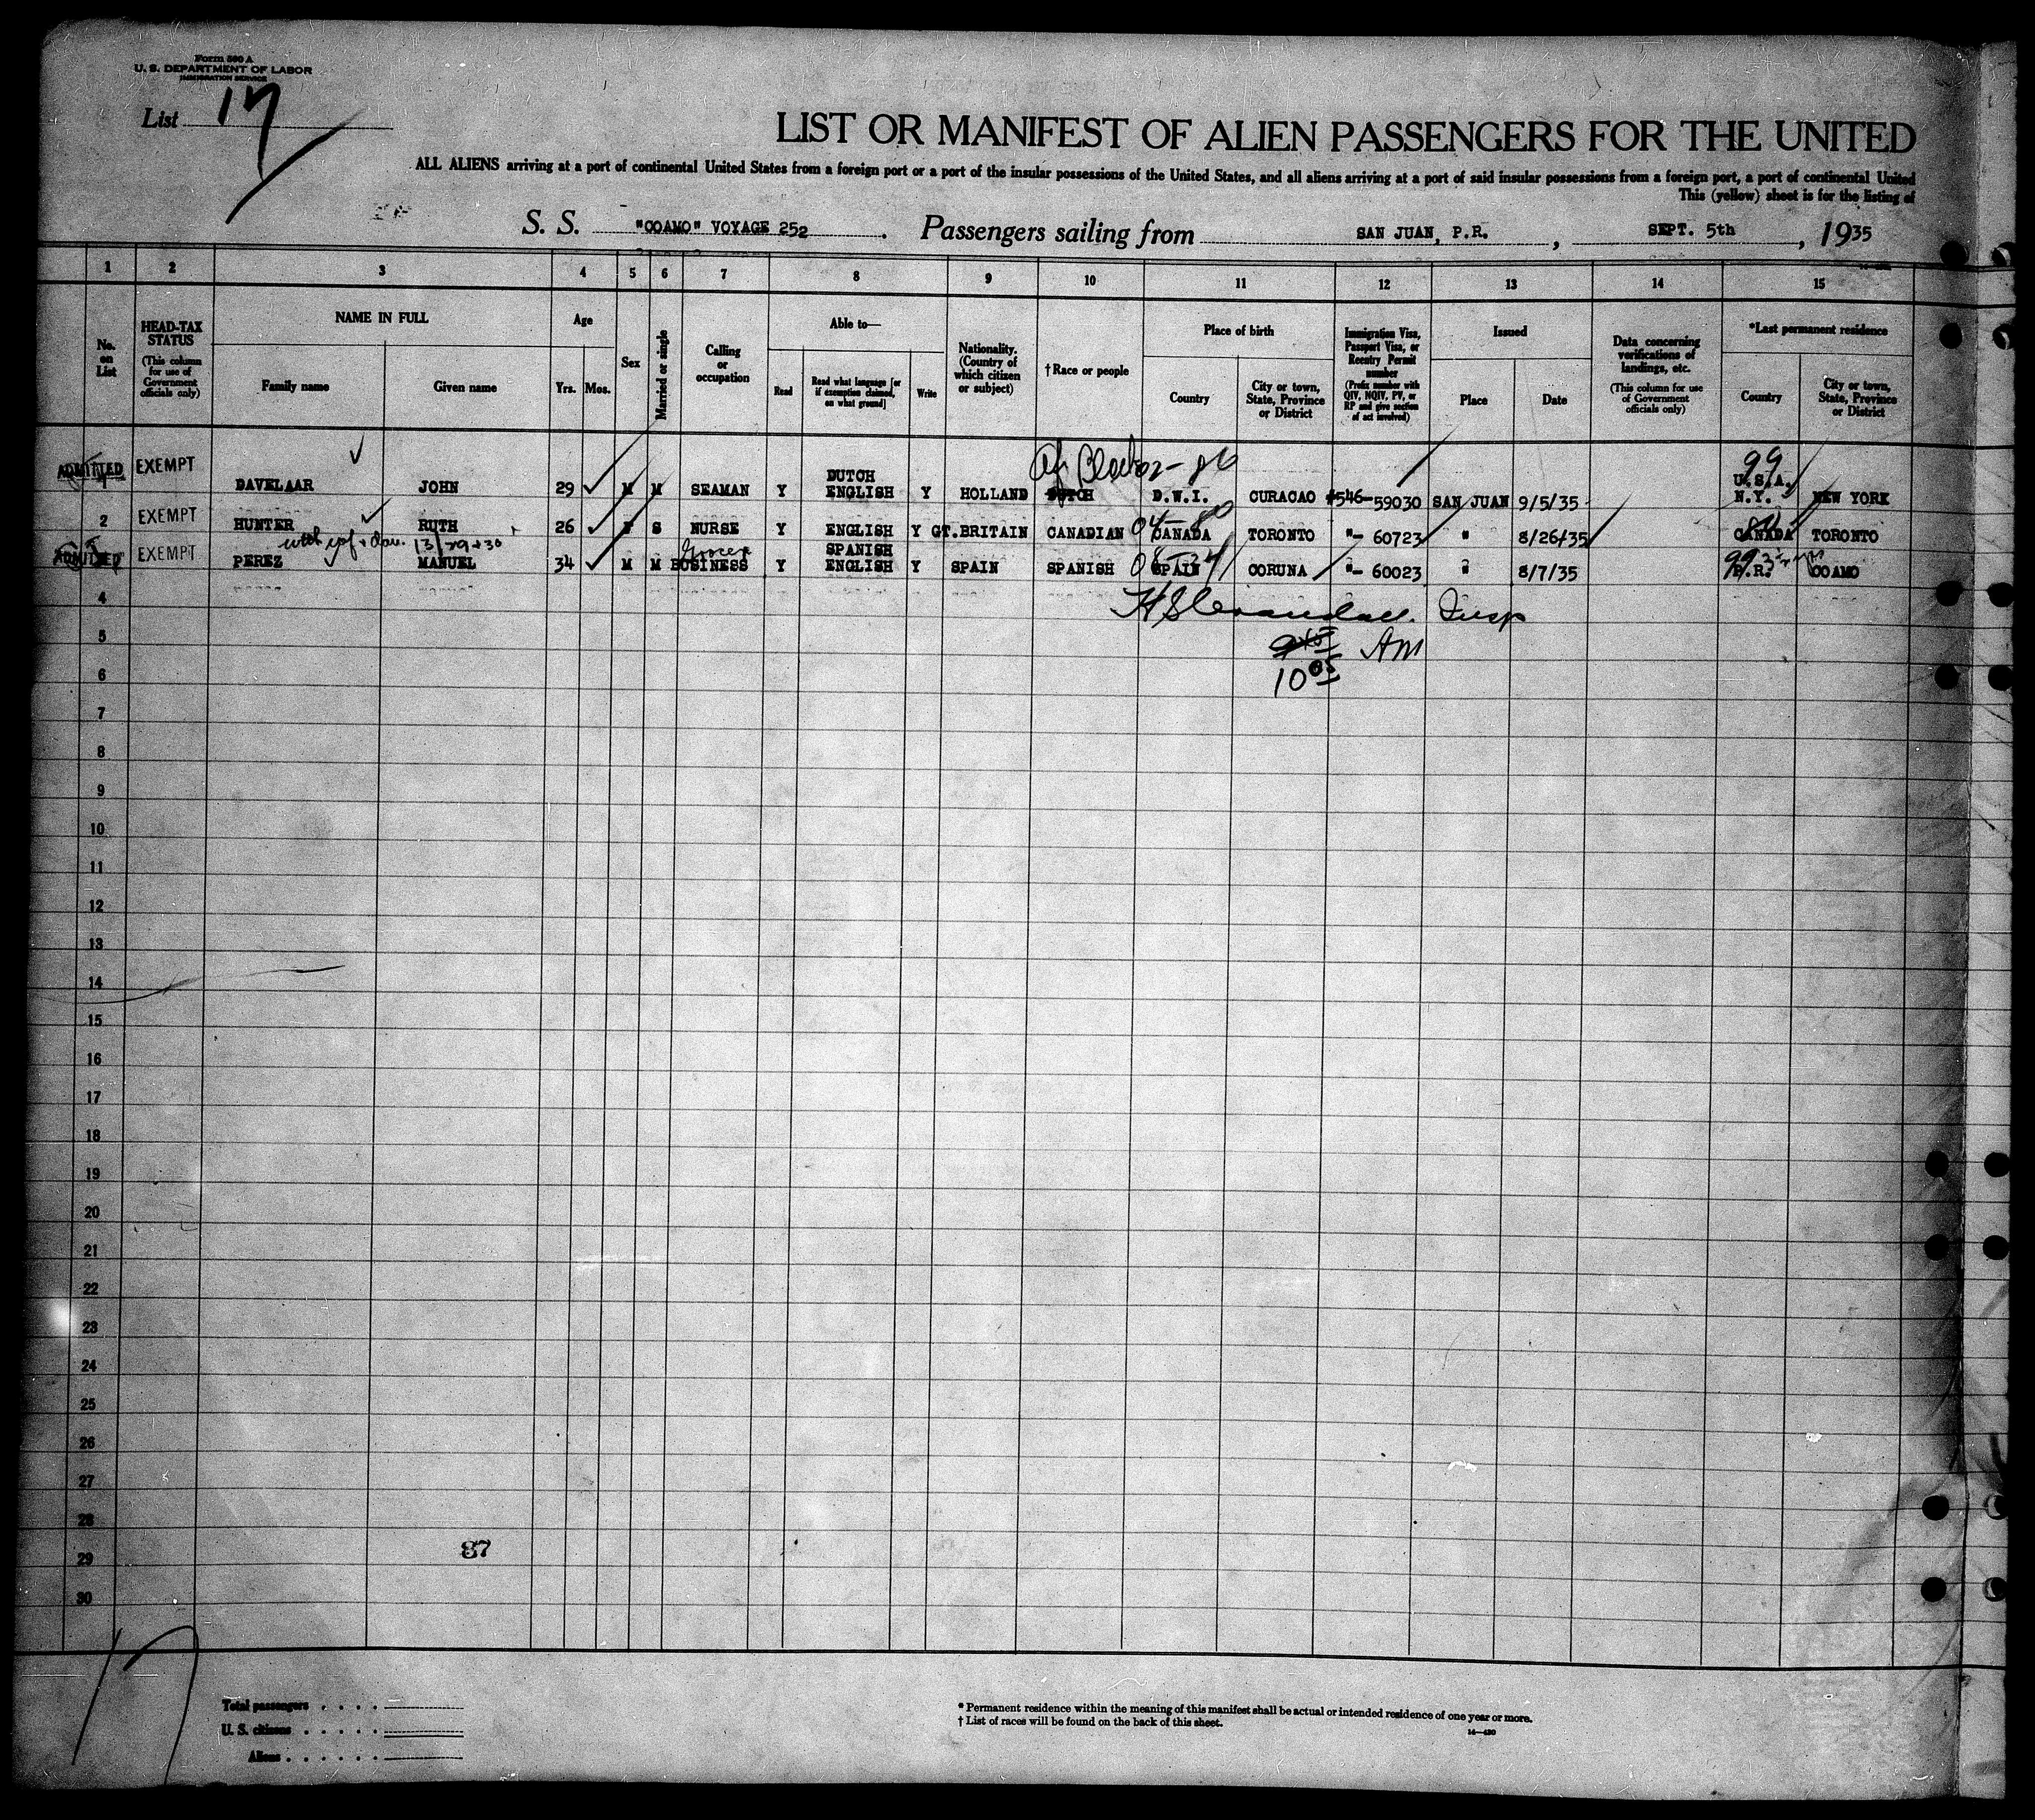 Form 500 A
U. S. DEPARTMENT OF LABOR
IMMIGRATION SERVICE
List 17
LIST OR MANIFEST OF ALIEN PASSENGERS FOR THE UNITED
ALL ALIENS arriving at a port of continental United States from a foreign port or a port of the insular possessions of the United States, and all aliens arriving at a port of said insular possessions from a foreign port, a port of continental United
This (yellow) sheet is for the listing of
S. S. "COAMO" VOYAGE 252. Passengers sailing from SAN JUAN, P.R., SEPT. 5th, 1935
1 2 3 4 5 6 7 8 9 10 11 12 13 14 15
No. on List
HEAD-TAX STATUS (This column for use of Government officials only)
NAME IN FULL
Family name Given name
Age
Yrs. Mos.
Sex
Married or single
Calling or occupation
Able to—
Read
Read what language [or if exemption claimed, on what ground]
Write
Nationality. (Country of which citizen or subject)
†Race or people
Place of birth
Country
City or town, State, Province or District
Immigration Visa, Passport Visa, or Reentry Permit number (Prefix number with QIV, NQIV, PV, or RP and give section of act involved)
Issued
Place Date
Data concerning verifications of landings, etc. (This column for use of Government officials only)
*Last permanent residence
Country
City or town, State, Province or District
ADMITTED 1 EXEMPT DAVELAAR JOHN 29 M M SEAMAN Y DUTCH ENGLISH Y HOLLAND DUTCH Af Black D.W.I. CURACAO #546-59030 SAN JUAN 9/5/35 99 U.S.A. N.Y. NEW YORK
2 EXEMPT HUNTER RUTH 26 F S NURSE Y ENGLISH Y GT.BRITAIN CANADIAN CANADA TORONTO "- 60723 " 8/26/35 CANADA TORONTO
ADMITTED 3 EXEMPT PEREZ MANUEL 34 M M Grocer BUSINESS Y SPANISH ENGLISH Y SPAIN SPANISH SPAIN CORUNA "- 60023 " 8/7/35 99 P.R. COAMO
4
5
AM
6
10 05
7
8
9
10
11
12
13
14
15
16
17
18
19
20
21
22
23
24
25
26
27
28
37
29
30
17
Total passengers
U. S. citizens
Aliens
* Permanent residence within the meaning of this manifest shall be actual or intended residence of one year or more.
† List of races will be found on the back of this sheet.
14—430